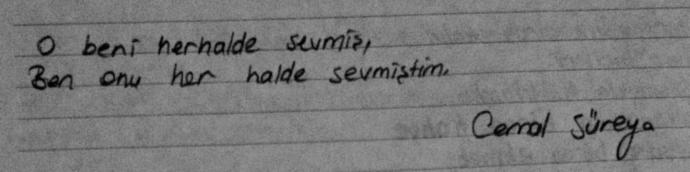 O beni herhalde sevmiş,
Ben onu her halde sevmiştim.
Cemal Süreya